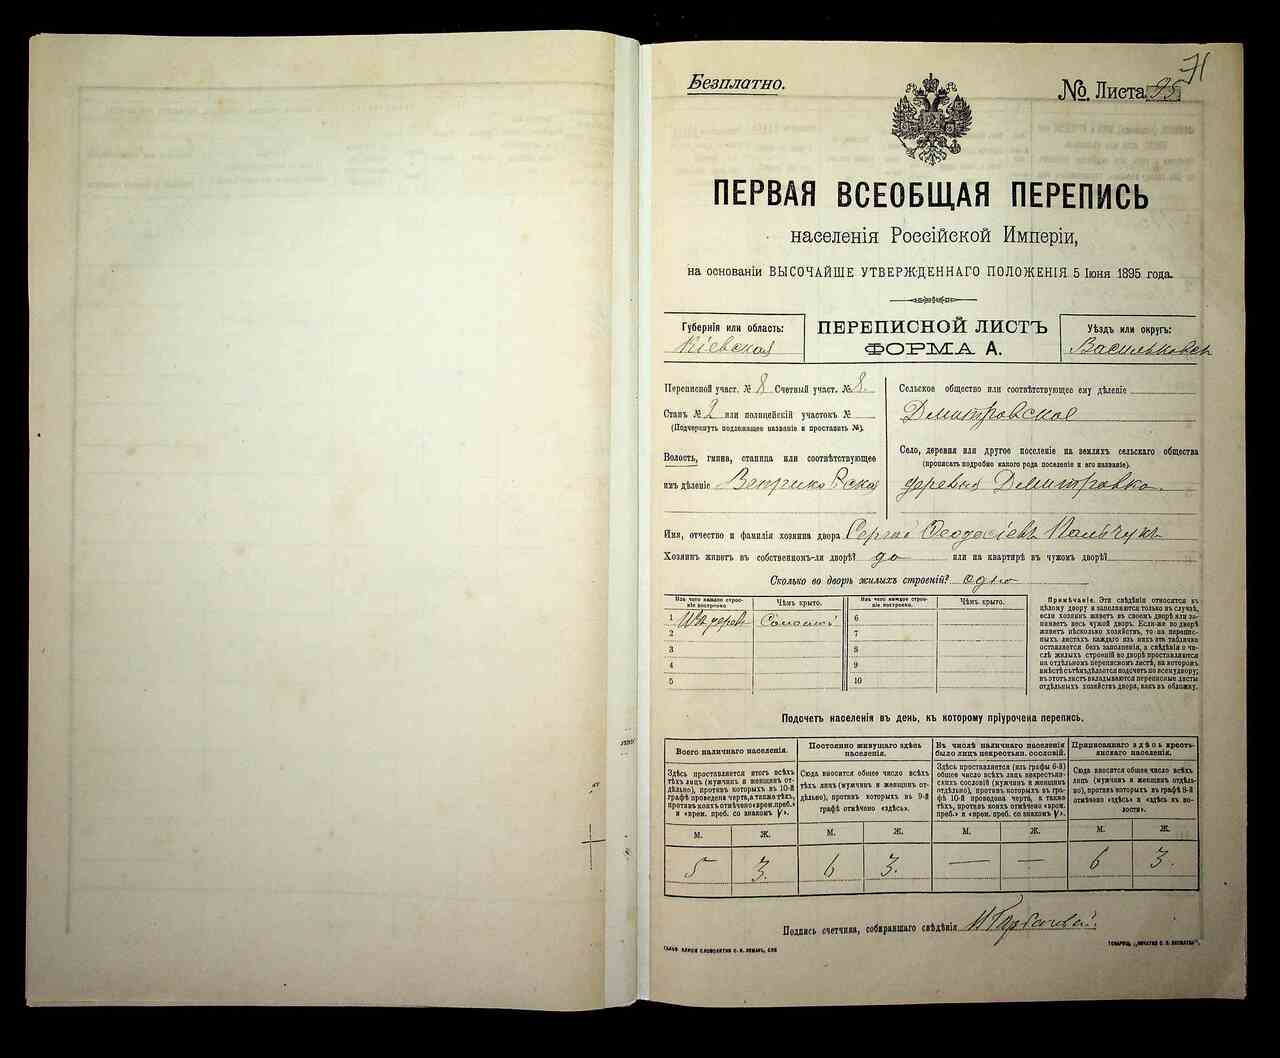 71
Безплатно.
№ Листа 95
ПЕРВАЯ ВСЕОБЩАЯ ПЕРЕПИСЬ
населенія Россійской Имперіи,
на основаніи ВЫСОЧАЙШЕ УТВЕРЖДЕННАГО ПОЛОЖЕНІЯ 5 Іюня 1895 года.
Губернія или область:
Кіевская
ПЕРЕПИСНОЙ ЛИСТЪ
ФОРМА А.
Уѣздъ или округъ:
Васильковск
Переписной участ. № 8 Счетный участ. № 8.
Станъ № 2 или полицейскій участокъ №
(Подчеркнуть подлежащее названіе и проставить №).
Волость, гмина, станица или соотвѣтствующее
имъ дѣленіе Веприковская
Сельское общество или соотвѣтствующее ему дѣленіе
Дмитровское
Село, деревня или другое поселеніе на земляхъ сельскаго общества
(прописать подробно какого рода поселеніе и его названіе).
деревня Дмитровка
Имя, отчество и фамилія хозяина двора Сергій Ѳеодосіевъ Пальчукъ
Хозяинъ живетъ въ собственномъ-ли дворѣ? да или на квартирѣ въ чужомъ дворѣ?
Сколько во дворѣ жилыхъ строеній? одно
Изъ чего каждое строеніе построено
Чѣмъ крыто.
Изъ чего каждое строеніе построено.
Чѣмъ крыто.
1 Изъ дерев Соломой 6
2 7
3 8
4 9
5 10
Примѣчаніе. Эти свѣдѣнія относятся къ
цѣлому двору и заполняются только въ случаѣ,
если хозяинъ живетъ въ своемъ дворѣ или занимаетъ весь чужой дворъ. Если-же во дворѣ
живетъ нѣсколько хозяйствъ, то на переписныхъ листахъ каждаго изъ нихъ эта табличка
оставляется безъ заполненія, а свѣдѣнія о числѣ жилыхъ строеній во дворѣ проставляются
на отдѣльномъ переписномъ листѣ, на которомъ
вмѣстѣ съ тѣмъ дѣлается подсчетъ по всему двору;
въ этотъ листъ вкладываются переписные листы
отдѣльныхъ хозяйствъ двора, какъ въ обложку.
Подсчетъ населенія въ день, къ которому пріурочена перепись.
Всего наличнаго населенія.
Здѣсь проставляется итогъ всѣхъ
тѣхъ лицъ (мужчинъ и женщинъ отдѣльно), противъ которыхъ въ 10-й
графѣ проведена черта, а также тѣхъ,
противъ коихъ отмѣчено «врем. преб.»
и «врем. преб. со знакомъ V».
Постоянно живущаго здѣсь
населенія.
Сюда вносится общее число всѣхъ
тѣхъ лицъ (мужчинъ и женщинъ отдѣльно), противъ которыхъ въ 9-й
графѣ отмѣчено «здѣсь».
Въ числѣ наличнаго населенія
было лицъ некрестьян. сословій.
Здѣсь проставляется (изъ графы 6-й)
общее число всѣхъ лицъ некрестьянскихъ сословій (мужчинъ и женщинъ
отдѣльно), противъ которыхъ въ графѣ 10-й проведена черта, а также
тѣхъ, противъ коихъ отмѣчено «врем.
преб.» и «врем. преб. со знакомъ V».
Приписаннаго здѣсь крестьянскаго населенія.
Сюда вносится общее число всѣхъ
лицъ (мужчинъ и женщинъ отдѣльно), противъ которыхъ въ графѣ 8-й
отмѣчено «здѣсь» и «здѣсь въ волости».
М. Ж. М. Ж. М. Ж. М. Ж.
5 3. 6 3. — — 6 3.
Подпись счетчика, собиравшаго свѣдѣнія